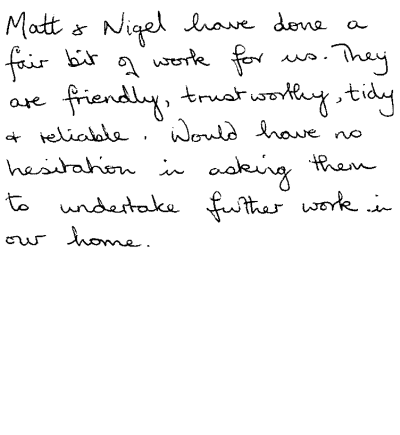 Matt & Nigel have done a
fair bit of work for us. They
are friendly, trustworthy, tidy
+ reliable. Would have no
hesitation in asking them
to undertake further work in
our home.